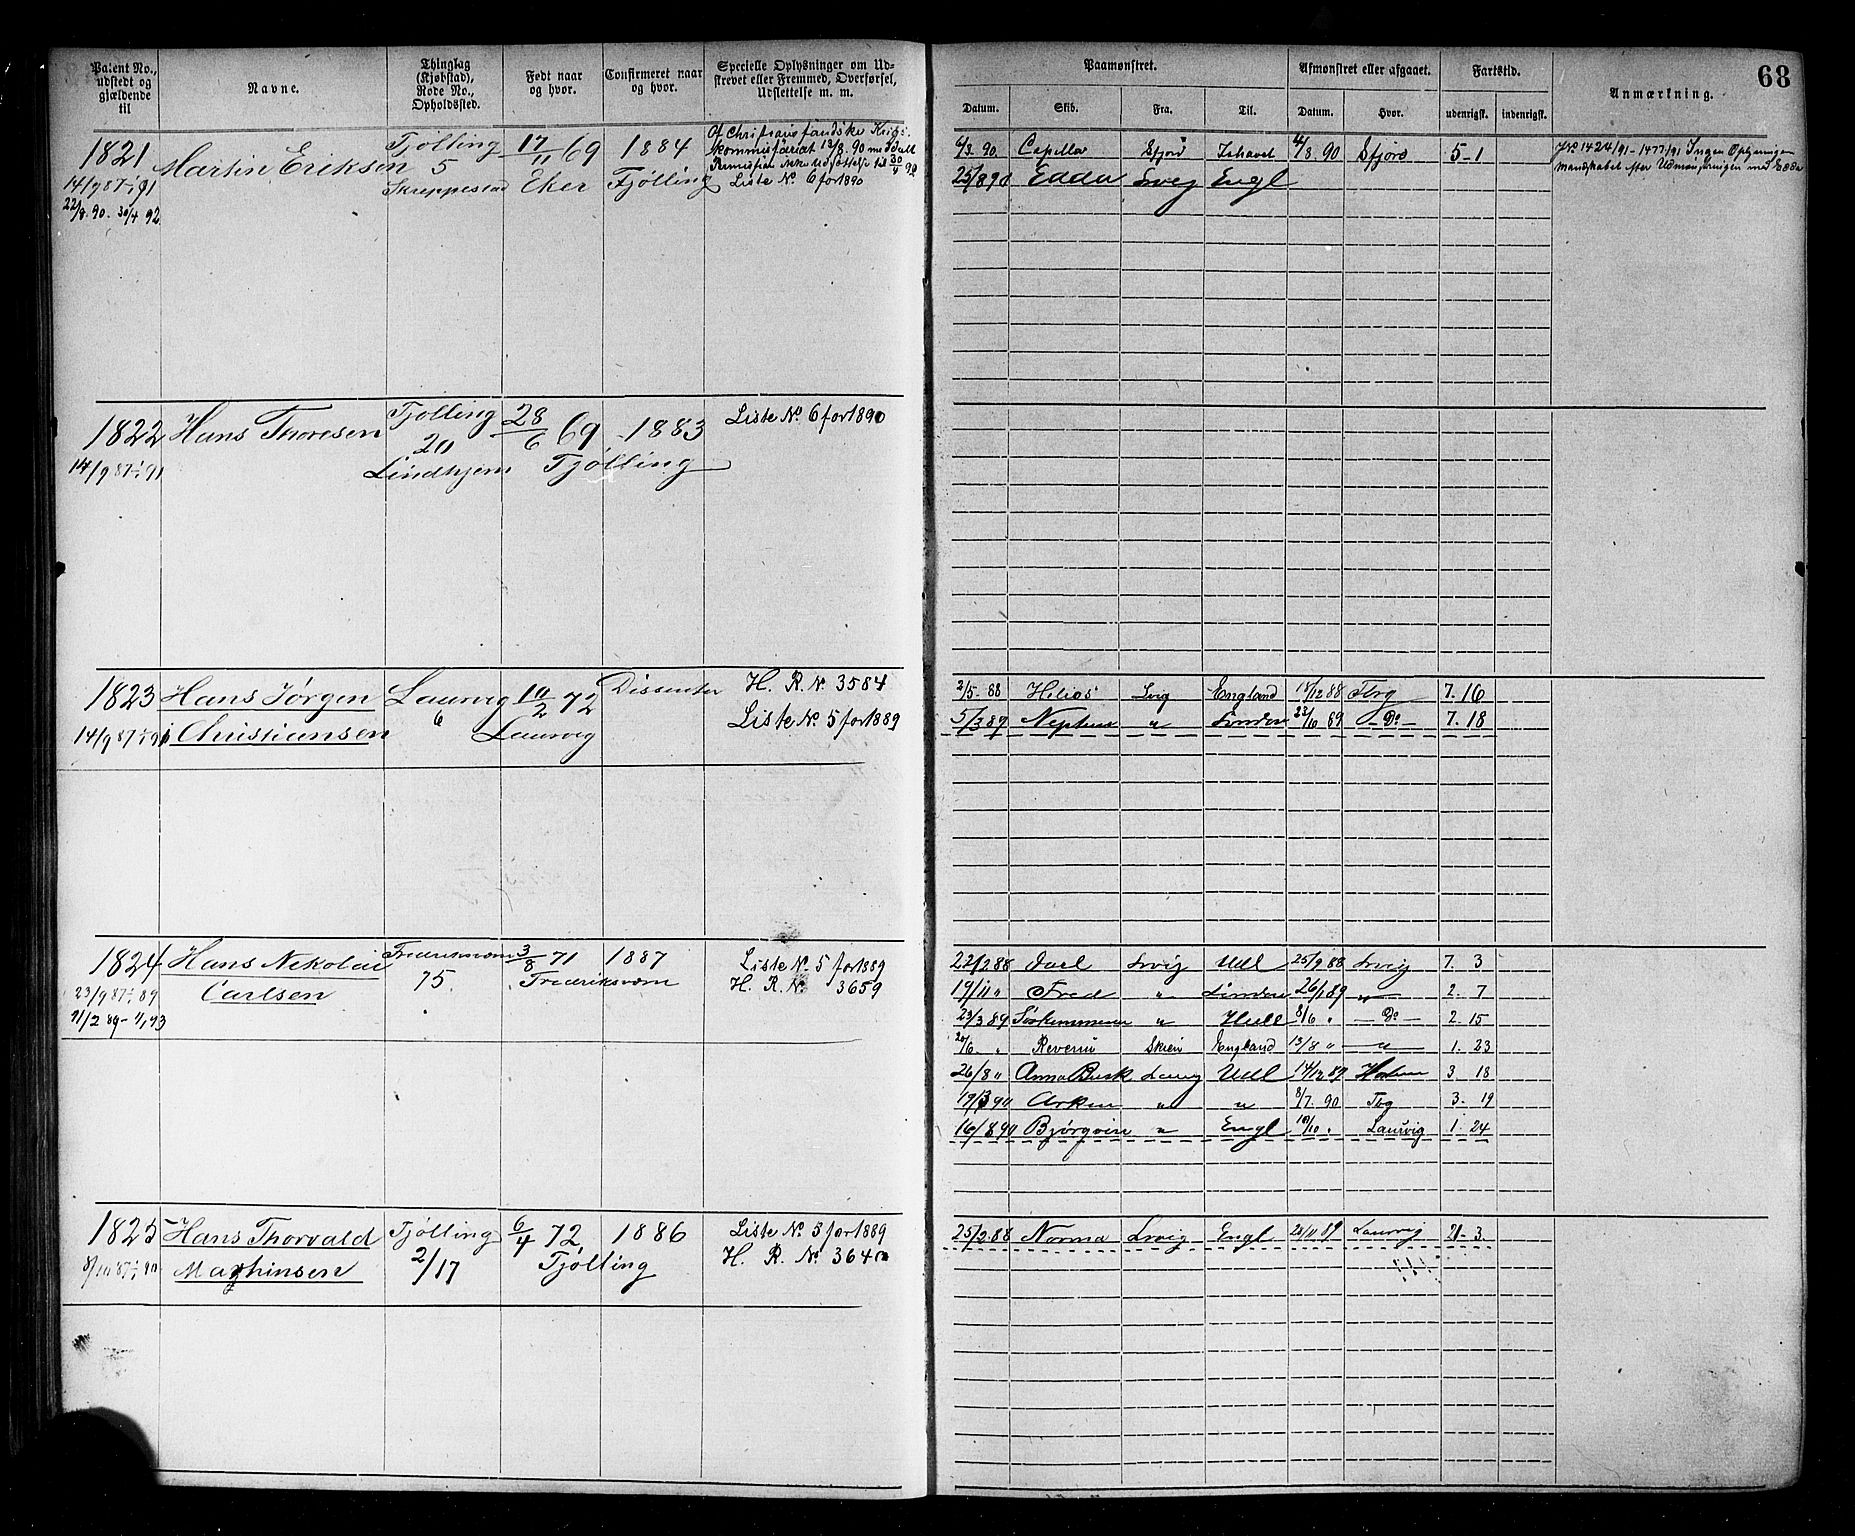 68
Patent No., udstedt og gjældende til
Navne.
Thinglag (Kjøbstad), Rode No., Opholdssted.
Født naar og hvor.
Confirmeret naar og hvor.
Specielle Oplysninger om Udstrevet eller Fremmed, Overførsel, Udslettelse m. m.
Paamønstret.
Afmønstret eller afgaaet.
Fartstid.
Anmærkning.
Datum. Skib. Fra. Til. Datum. Hvor. udenrigsk. indenrigsk.
1821 Martin Eriksen Tjølling 5 Skreppestad 17/11 69 Eker 1884 Tjølling
14/9 87 - 1/1 91
22/8 90 - 30/4 92
Af Christianssandske Krigs-
kommissariat 13/8. 90 meddelt
Permission Udsættelse til 30/4 92
Liste No. 6 for 1890
4/3. 90. Capella Sfjord Ishavet 4/8. 90 Sfjord 5-1
25/8 90 Edda Lvig Engl
JNo 1424/91 - 1477/91 Ingen Oplysninger
mandskabet efter Udmønstringen med Edda
1822 Hans Thoresen Tjølling 20 Lindhjem 28/6 69 Tjølling 1883
14/9 87 - 1/1 91
Liste No. 6 for 1890
1823 Hans Jørgen Christiansen Laurvig 6 10/2 72 Laurvig Dissenter
14/9 87 - 1/1 91
H. R. No. 3584
Liste No. 5 for 1889
2/5. 88 Helios Lvig England 14/12 88 Fbg 7. 16
5/3 89 Neptun " London 23/10 89 - Do - 7. 18
1824 Hans Nekolai Carlsen Frederiksværn 75. 3/8 71 Frederiksværn 1887
23/9 87 - 1/1 89
21/2 89 - 1/1 93
Liste No. 5 for 1889
H. R. No. 3659
22/2 88 Lvig Udl 25/9 88 Lvig 7. 3
19/11 " Fred " London 26/1 89 " 2. 7
23/3 89 " Hull 8/6 " - Do - 2. 15
20/6 " Skien England 13/8 " " 1. 23
26/8 " Anna Busk Laurvig Udl 14/12 89 3 18
19/3 90 Arken " " 8/7. 90 Tbg 3. 19
16/8 90 Bjørgvin " Engl 10/10 " Laurvig 1. 24
1825 Hans Thorvald Mathinsen Tjølling 2/17 6/4 72 Tjølling 1886
8/10 87 - 1/1 90
Liste No. 5 for 1889
H. R. No. 3640
25/2 88 Norma Lvig Engl 28/11 89 Laurvig 21-3.